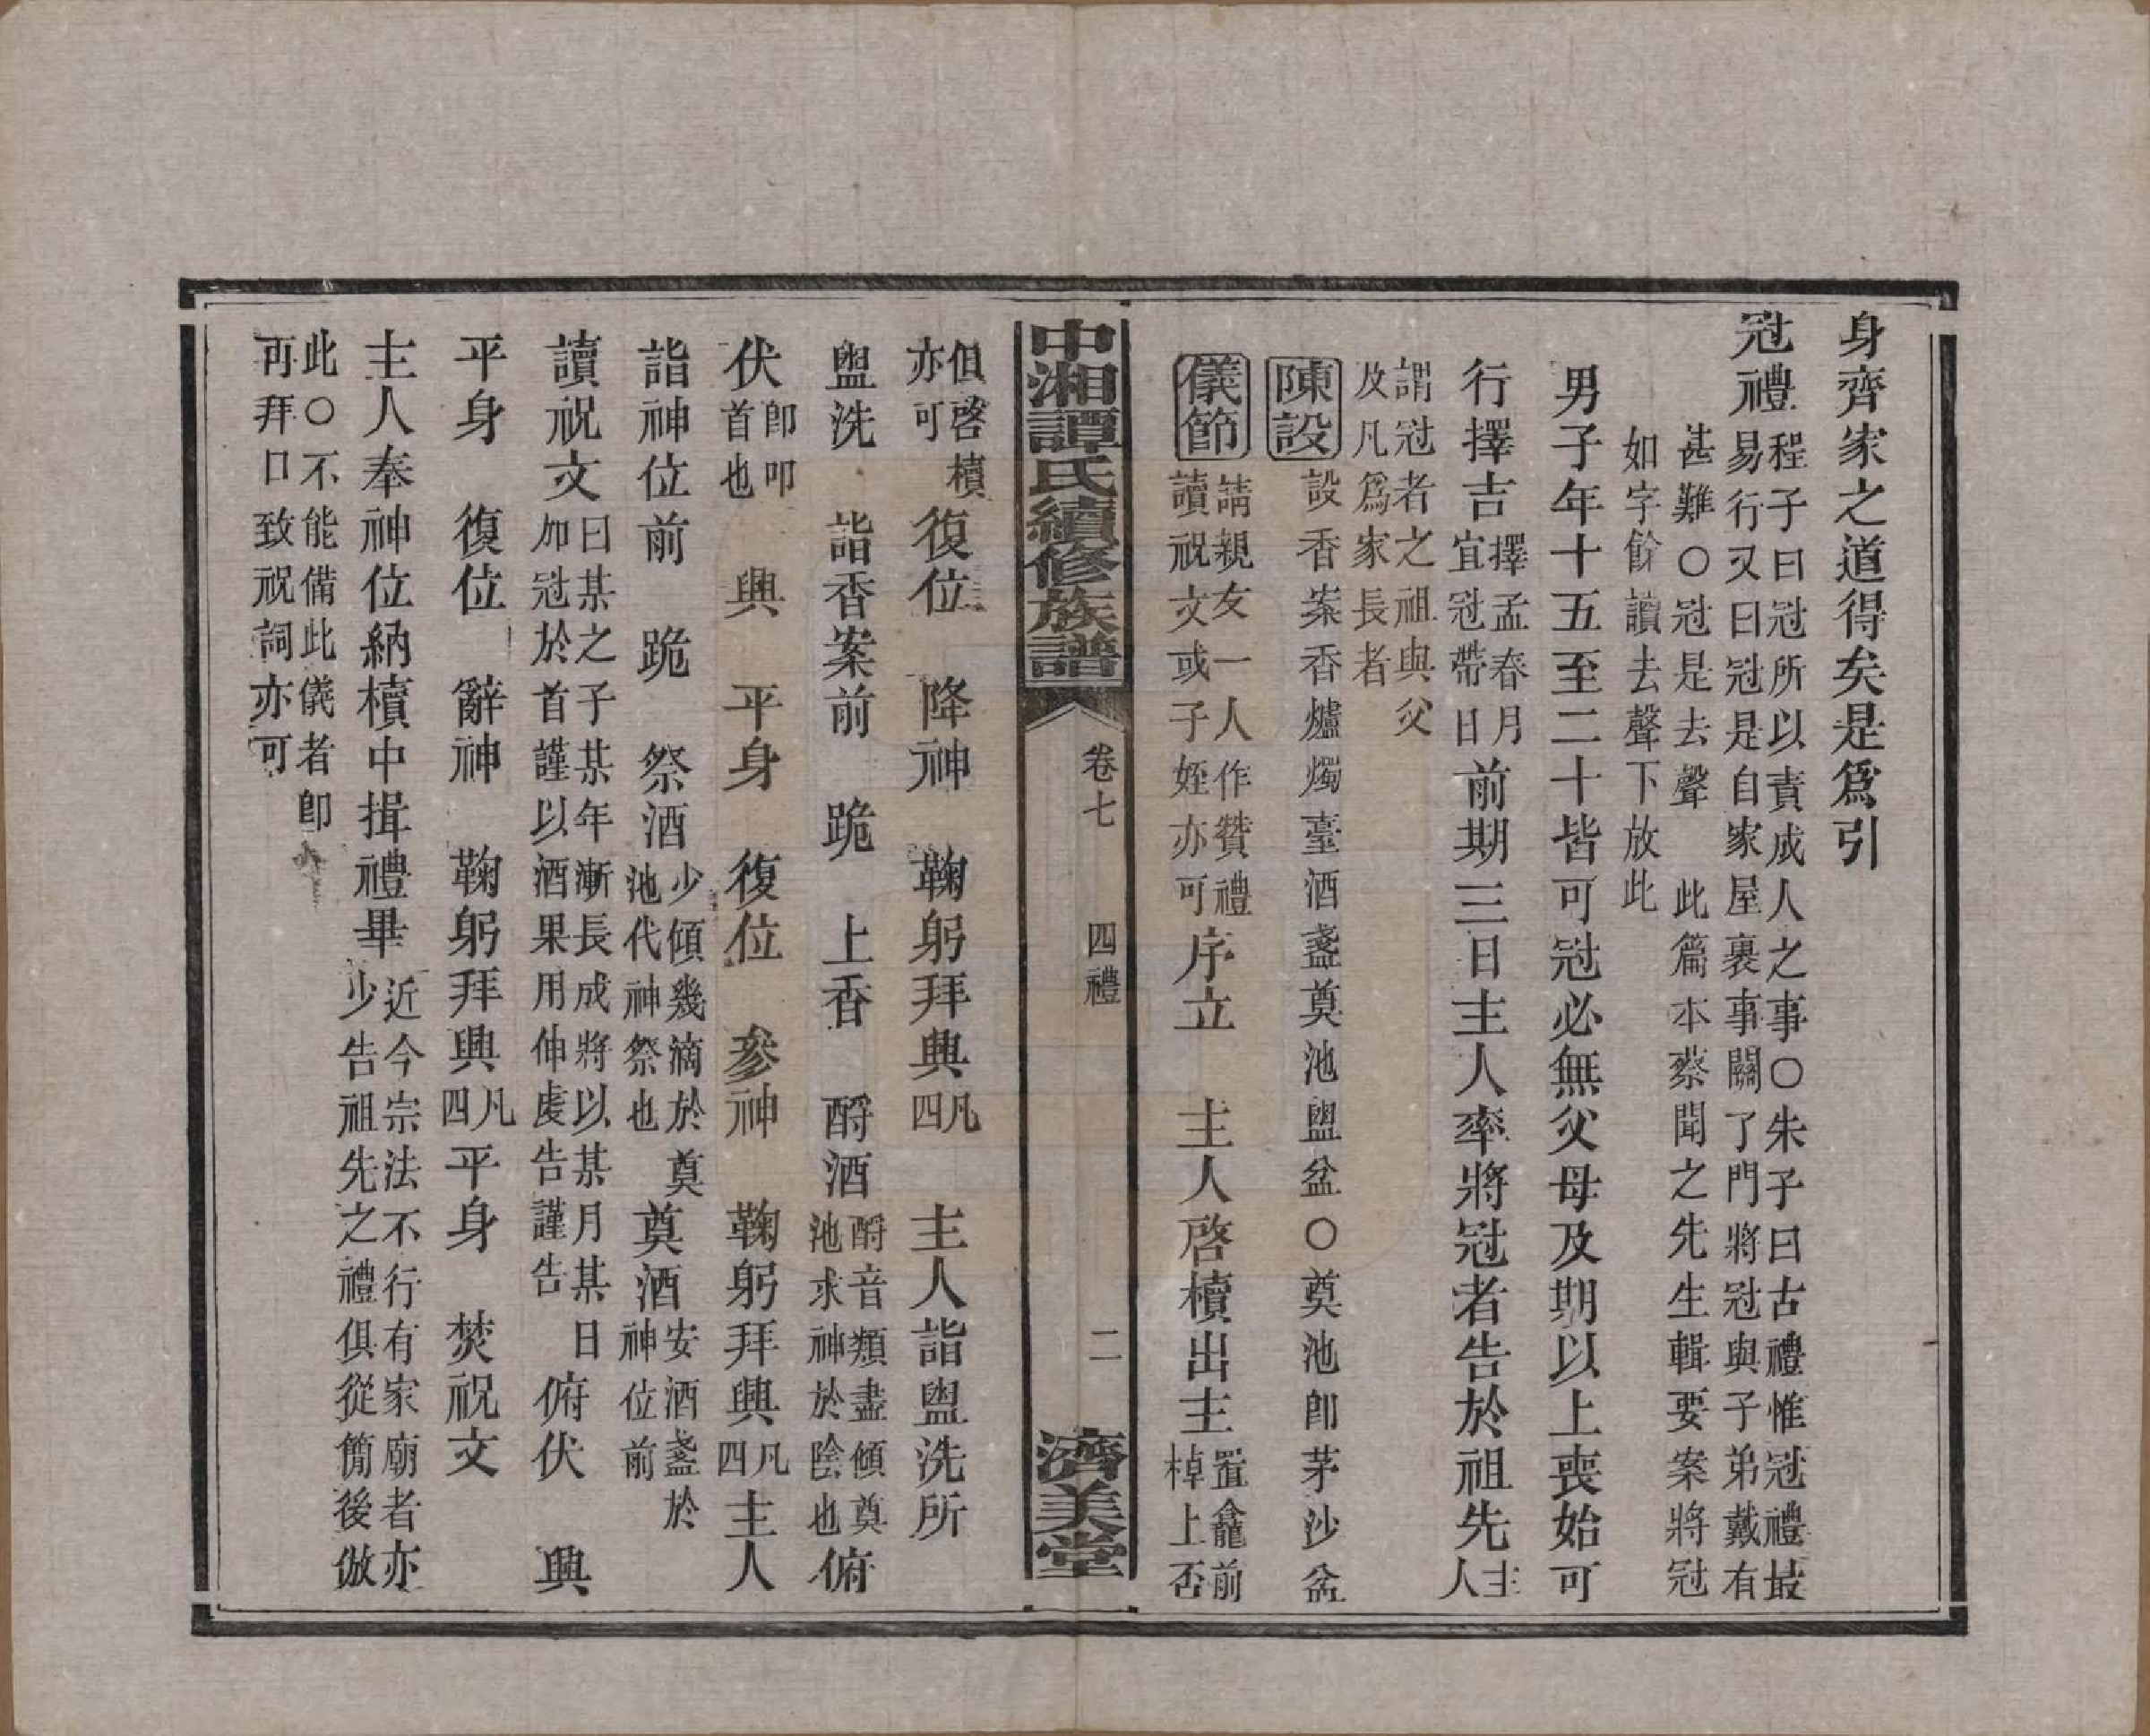 身齊家之道得矣是爲引
冠禮程子曰冠所以責成人之事○朱子曰古禮惟冠禮最
易行又曰冠是自家屋裏事關了門將冠與子弟戴有
甚難○冠是去聲 此篇本蔡聞之先生輯要案將冠
如字餘讀去聲下放此
男子年十五至二十皆可冠必無父母及期以上喪始可
行擇吉擇孟春月宜冠帶日前期三日主人率將冠者告於祖先主人
謂冠者之祖與父
及凡爲家長者
陳設設香案香爐燭臺酒盞奠池盥盆○奠池卽茅沙盆
儀節請親友一人作贊禮讀祝文或子姪亦可序立 主人啓櫝出主置龕前棹上否
中湘譚氏續修族譜 卷七 四禮 二 濟美堂
俱啓櫝亦可復位 降神 鞠躬拜興凡四 主人詣盥洗所
盥洗 詣香案前 跪 上香 酹酒酹音類盡傾奠池求神於陰也俯
伏卽叩首也 興 平身 復位 參神 鞠躬拜興凡四主人
詣神位前 跪 祭酒少傾幾滴於奠池代神祭也 奠酒安酒盞於神位前
讀祝文曰某之子某年漸長成將以某月某日加冠於首謹以酒果用伸虔告謹告 俯伏 興
平身 復位 辭神 鞠躬拜興凡四平身 焚祝文
主人奉神位納櫝中揖禮畢近今宗法不行有家廟者亦少告祖先之禮俱從簡後倣
此○不能備此儀者卽
再拜口致祝詞亦可